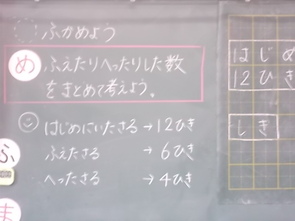 ふかめよう
め
ふえたりへったりした数
をまとめて考えよう。
はじめにいたさる→12ひき
ふえたさる→6ひき
へったさる→4ひき
ふ
ま
はじめ
12ひき
しき